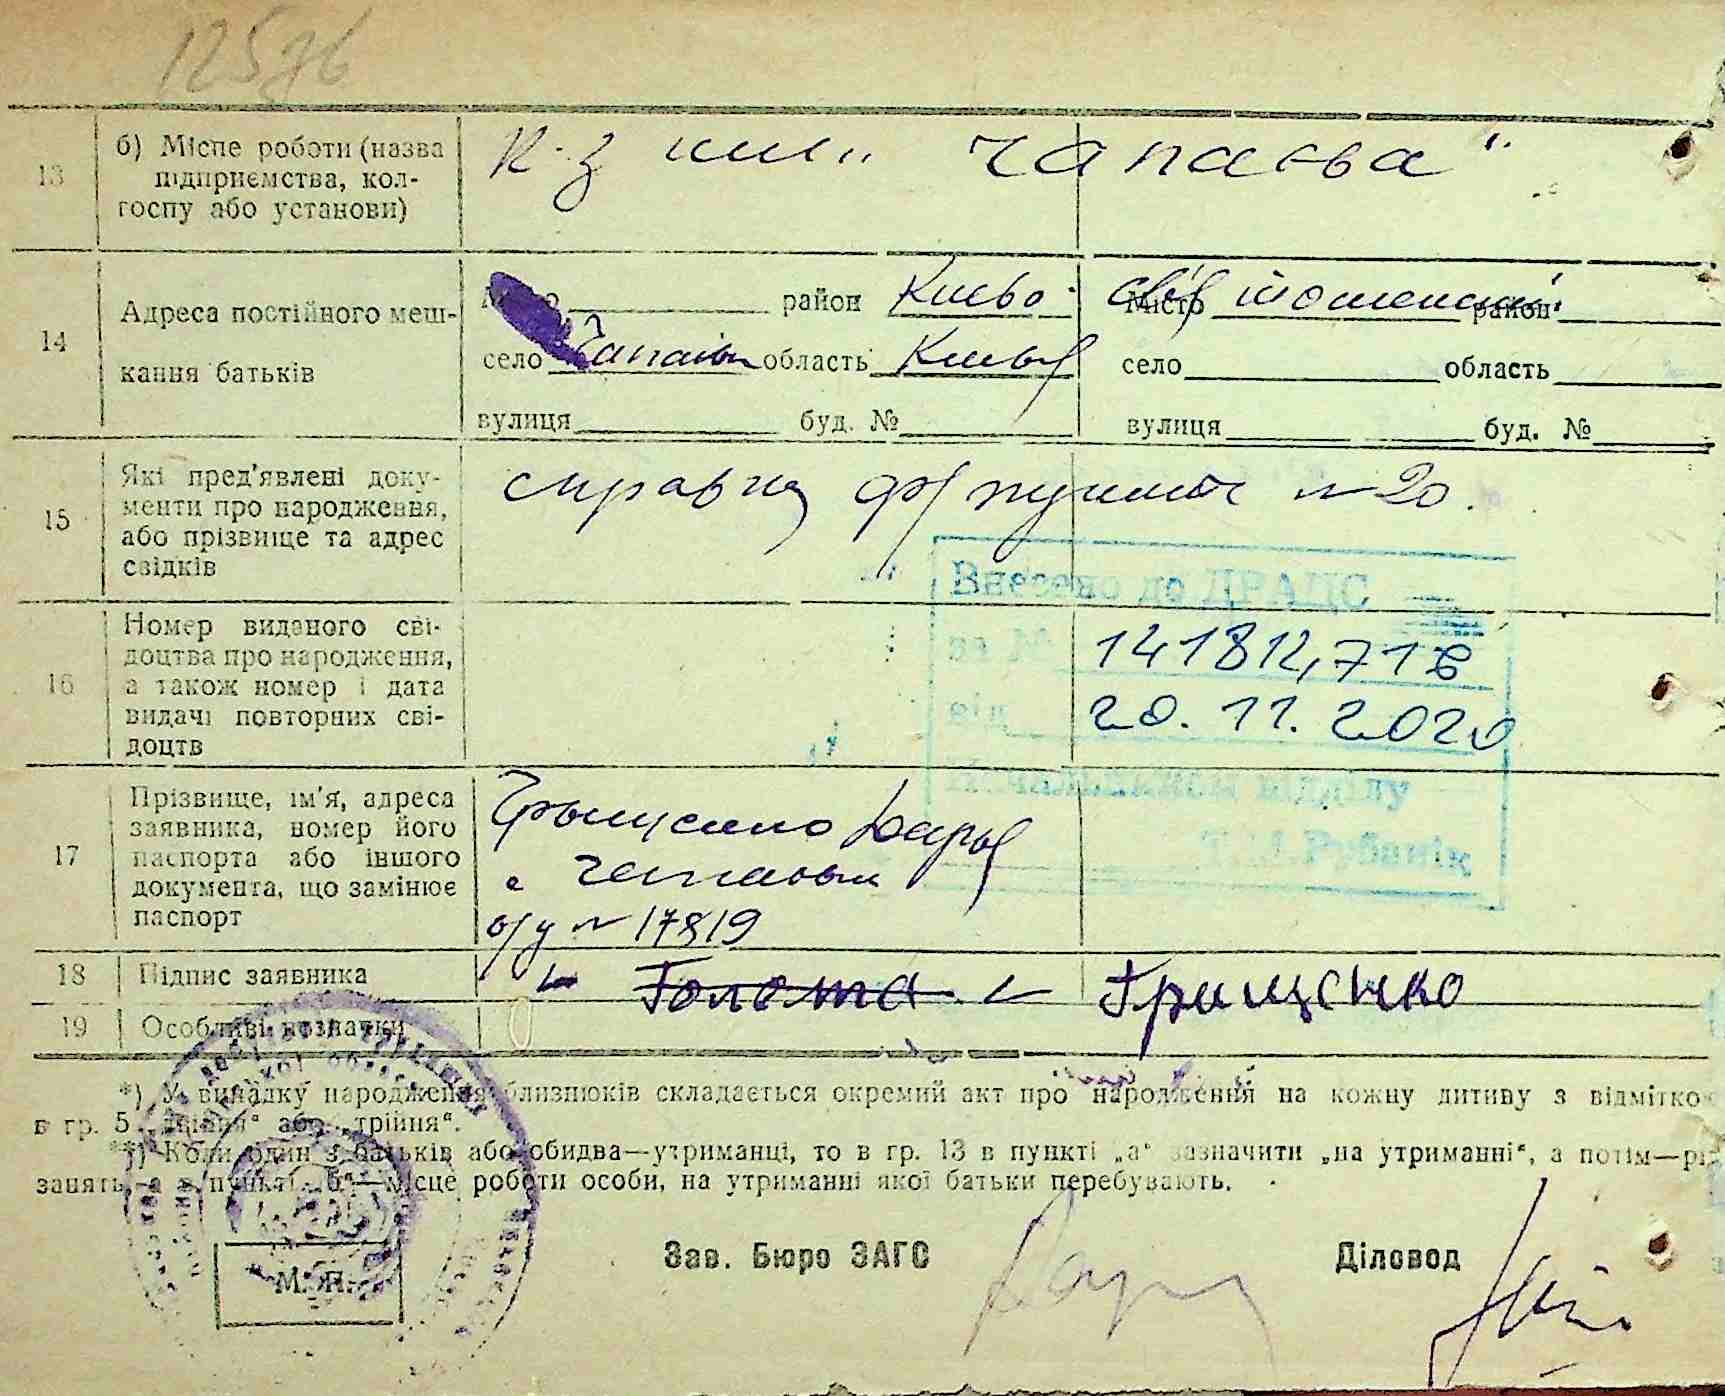 12576
13
б) Місце роботи (назва
підприємства, кол-
госпу або установи)
к-з им. "Чапаєва"
14
Адреса постійного меш-
кання батьків
район Києво-Святошенский
село Чапаївка область Київ
вулиця буд. №
Місто район
село область
вулиця буд. №
15
Які пред'явлені доку-
менти про народження,
або прізвище та адрес
свідків
справка ф/пункта № 20.
16
Номер виданого сві-
доцтва про народження,
а також номер і дата
видачі повторних сві-
доцтв
Внесено до ДРАЦС
за № 141812,716
від 20.11.2020
Начальником відділу
Рубаник
17
Прізвище, ім'я, адреса
заявника, номер його
паспорта або іншого
документа, що замінює
паспорт
Грищенко
с Чапаевка
№ 17819
18
Підпис заявника
Голота Грищенко
19
Особливі позначки
*) У випадку народження близнюків складається окремий акт про народження на кожну дитину з відмітко
в гр. 5 „двійня“ або „трійня“.
**) Коли один з батьків або обидва—утриманці, то в гр. 13 в пункті „а“ зазначити „на утриманні“, а потім—рі
занять, а в пункті „б“—місце роботи особи, на утриманні якої батьки перебувають.
Зав. Бюро ЗАГС
Діловод
М. П.